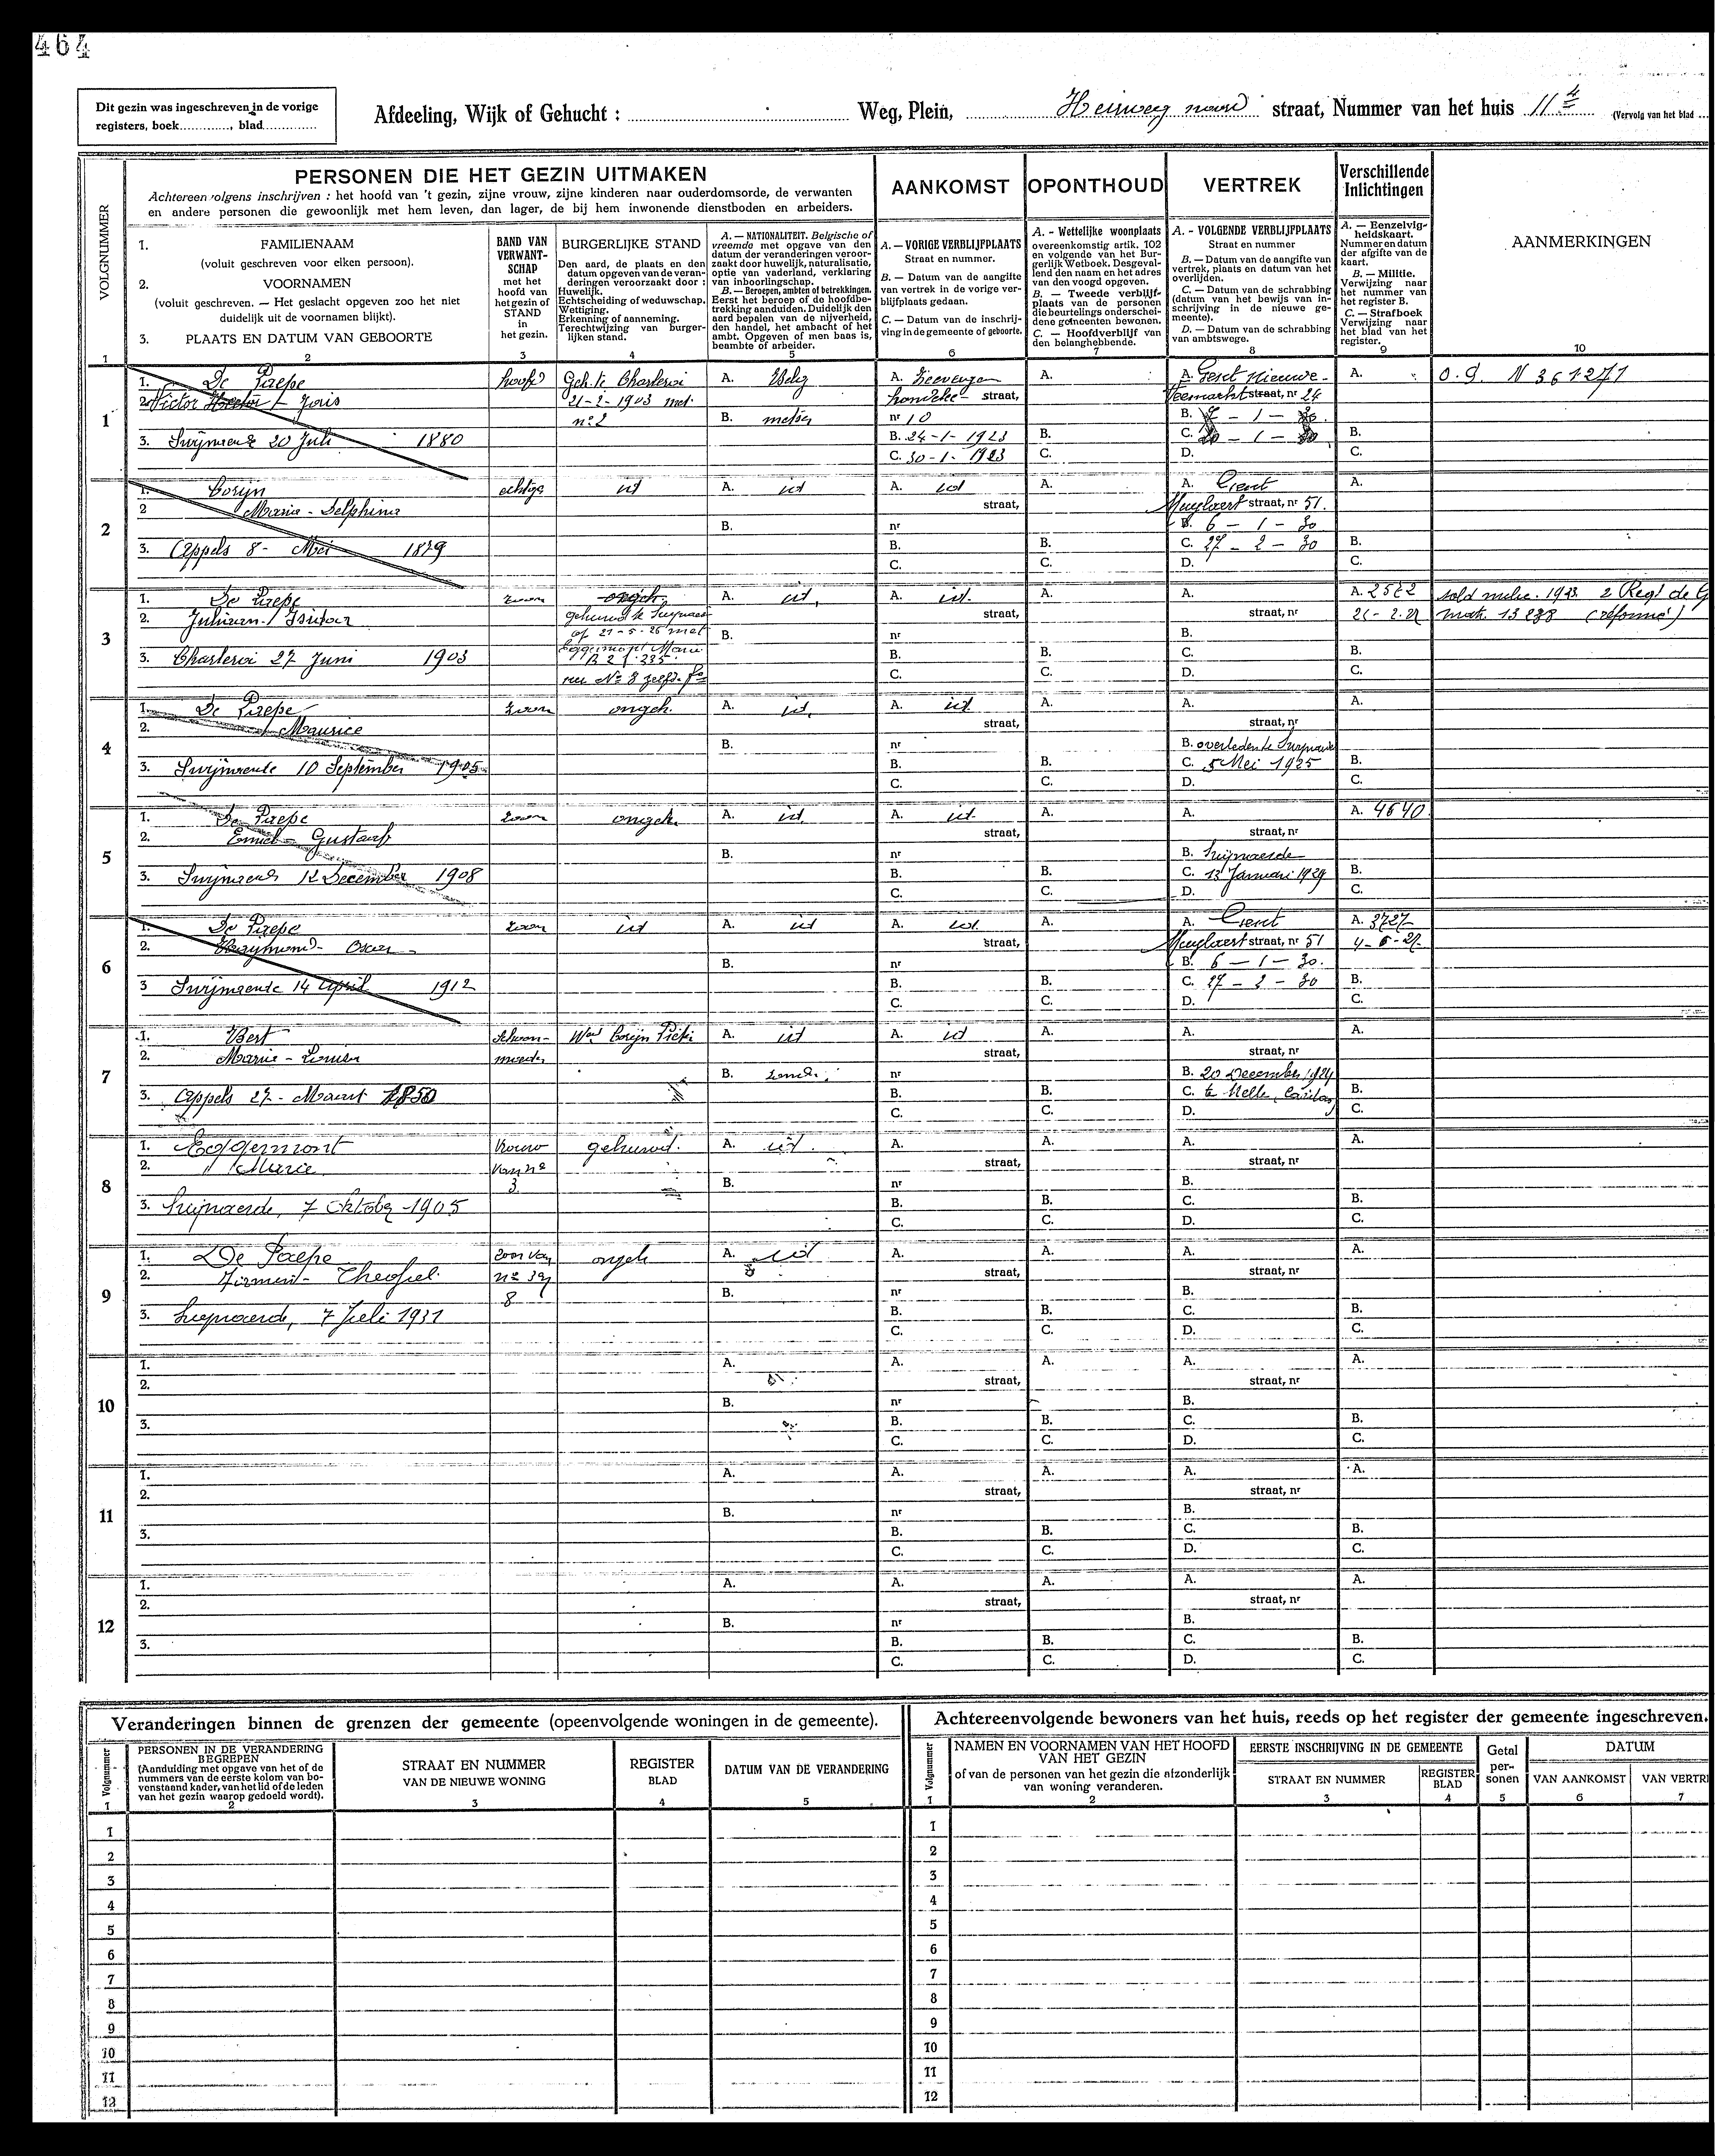 464
Dit gezin was ingeschreven in de vorige
registers, boek............, blad..............
Afdeeling, Wijk of Gehucht : Weg, Plein, Heirweg noord straat, Nummer van het huis 11 4 (Vervolg van het blad
PERSONEN DIE HET GEZIN UITMAKEN
Achtereenvolgens inschrijven : het hoofd van 't gezin, zijne vrouw, zijne kinderen naar ouderdomsorde, de verwanten
en andere personen die gewoonlijk met hem leven, dan lager, de bij hem inwonende dienstboden en arbeiders.
AANKOMST
OPONTHOUD
VERTREK
Verschillende
Inlichtingen
VOLGNUMMER
1. FAMILIENAAM
(voluit geschreven voor elken persoon).
2. VOORNAMEN
(voluit geschreven. — Het geslacht opgeven zoo het niet
duidelijk uit de voornamen blijkt).
3. PLAATS EN DATUM VAN GEBOORTE
BAND VAN
VERWANT-
SCHAP
met het
hoofd van
het gezin of
STAND
in
het gezin.
BURGERLIJKE STAND
Den aard, de plaats en den
datum opgeven van de veran-
deringen veroorzaakt door :
Huwelijk.
Echtscheiding of weduwschap.
Wettiging.
Erkenning of aanneming.
Terechtwijzing van burger-
lijken stand.
A. — NATIONALITEIT. Belgische of
vreemde met opgave van den
datum der veranderingen veroor-
zaakt door huwelijk, naturalisatie,
optie van vaderland, verklaring
van inboorlingschap.
B. — Beroepen, ambten of betrekkingen.
Eerst het beroep of de hoofdbe-
trekking aanduiden. Duidelijk den
aard bepalen van de nijverheid,
den handel, het ambacht of het
ambt. Opgeven of men baas is,
beambte of arbeider.
A. — VORIGE VERBLIJFPLAATS
Straat en nummer.
B. — Datum van de aangifte
van vertrek in de vorige ver-
blijfplaats gedaan.
C. — Datum van de inschrij-
ving in de gemeente of geboorte.
A. - Wettelijke woonplaats
overeenkomstig artik. 102
en volgende van het Bur-
gerlijk Wetboek. Desgeval-
lend den naam en het adres
van den voogd opgeven.
B. — Tweede verblijf-
plaats van de personen
die beurtelings onderschei-
dene gemeenten bewonen.
C. — Hoofdverblijf van
den belanghebbende.
A. - VOLGENDE VERBLIJFPLAATS
Straat en nummer
B. — Datum van de aangifte van
vertrek, plaats en datum van het
overlijden.
C. — Datum van de schrabbing
(datum van het bewijs van in-
schrijving in de nieuwe ge-
meente).
D. — Datum van de schrabbing
van ambtswege.
A. — Eenzelvig-
heidskaart.
Nummer en datum
der afgifte van de
kaart.
B. — Militie.
Verwijzing naar
het nummer van
het register B.
C. — Strafboek
Verwijzing naar
het blad van het
register.
AANMERKINGEN
1 2 3 4 5 6 7 8 9 10
1
1. De Paepe hoofd Geh. te Charleroi A. Belg A. A. A. Gent Nieuwe- A. O.G. N 361271
2. Victor Hector Joris 21-2-1903 met straat, Veemarkt straat, nr 24
n° 2 B. metser nr 10 B. 7 - 1 - 30
3. Swijnaerde 20 Juli 1880 B. 24-1-1923 B. C. 20 - 1 - 30 B.
C. 30-1-1923 C. D. C.
2
1. Corijn echtge id A. id A. id A. A. Gent A.
2 Maria - Delphina straat, Muylaert straat, nr 51.
B. nr B. 6 - 1 - 30
3. Appels 8 - Mei 1879 B. B. C. 27 - 2 - 30 B.
C. C. D. C.
3
1. De Paepe zoon ongeh. A. id. A. id. A. A. A. 2522 sold milic. 1923 2 Regt de G
2. Juliaan Isidoor gehuwd te Swijnaerde straat, straat, nr 21-2-27 matr. 13238 (réformé)
op 21-5-26 met B. nr B.
3. Charleroi 27 Juni 1903 Eggermont Marie B. B. C. B.
B 2 f. 235. C. C. D. C.
nu N° 8 zelfde f°
4
1. De Paepe zoon ongeh. A. id. A. id A. A. A.
2. Maurice straat, straat, nr
B. nr B. overleden te Swijnaerde
3. Swijnaerde 10 September 1905 B. B. C. 5 Mei 1925 B.
C. C. D. C.
5
1. De Paepe zoon ongeh. A. id. A. id. A. A. A. 4640
2. Emiel - Gustaaf straat, straat, nr
B. nr B. Swijnaerde
3. Swijnaerde 12 December 1908 B. B. C. 13 Januari 1929 B.
C. C. D. C.
6
1. De Paepe zoon id A. id A. id. A. A. Gent A. 3727
2. Raymond - Oscar straat, Muylaert straat, nr 51 4-6-27
B. nr B. 6 - 1 - 30.
3 Swijnaerde 14 April 1912 B. B. C. 27 - 2 - 30 B.
C. C. D. C.
7
1. Bert schoon- Wed Corijn A. id A. id A. A. A.
2. Marie - Louisa moeder straat, straat, nr
B. zonder nr B. 20 December 1924
3. Appels 27 - Maart 1850 B. B. C. te Melle, Caritas B.
C. C. D. C.
8
1. Eggermont vrouw gehuwd. A. id. A. A. A. A.
2. Marie van n° straat, straat, nr
3. B. nr B.
3. Swijnaerde, 7 Oktober 1905 B. B. C. B.
C. C. D. C.
9
1. De Paepe zoon van ongeh A. id A. A. A. A.
2. Firmin - Theofiel. n° 3 en straat, straat, nr
8 B. nr B.
3. Swijnaerde, 7 Juli 1931 B. B. C. B.
C. C. D. C.
10
1. A. A. A. A. A.
2. straat, straat, nr
B. nr B.
3. B. B. C. B.
C. C. D. C.
11
1. A. A. A. A. A.
2. straat, straat, nr
B. nr B.
3. B. B. C. B.
C. C. D. C.
12
1. A. A. A. A. A.
2. straat, straat, nr
B. nr B.
3. B. B. C. B.
C. C. D. C.
Veranderingen binnen de grenzen der gemeente (opeenvolgende woningen in de gemeente).
Volgnummer
PERSONEN IN DE VERANDERING
BEGREPEN
(Aanduiding met opgave van het of de
nummers van de eerste kolom van bo-
venstaand kader, van het lid of de leden
van het gezin waarop gedoeld wordt).
STRAAT EN NUMMER
VAN DE NIEUWE WONING
REGISTER
BLAD
DATUM VAN DE VERANDERING
1 2 3 4 5
1
2
3
4
5
6
7
8
9
10
11
12
Achtereenvolgende bewoners van het huis, reeds op het register der gemeente ingeschreven.
Volgnummer
NAMEN EN VOORNAMEN VAN HET HOOFD
VAN HET GEZIN
of van de personen van het gezin die afzonderlijk
van woning veranderen.
EERSTE INSCHRIJVING IN DE GEMEENTE
STRAAT EN NUMMER
REGISTER
BLAD
Getal
per-
sonen
DATUM
VAN AANKOMST
VAN VERTR
1 2 3 4 5 6 7
1
2
3
4
5
6
7
8
9
10
11
12